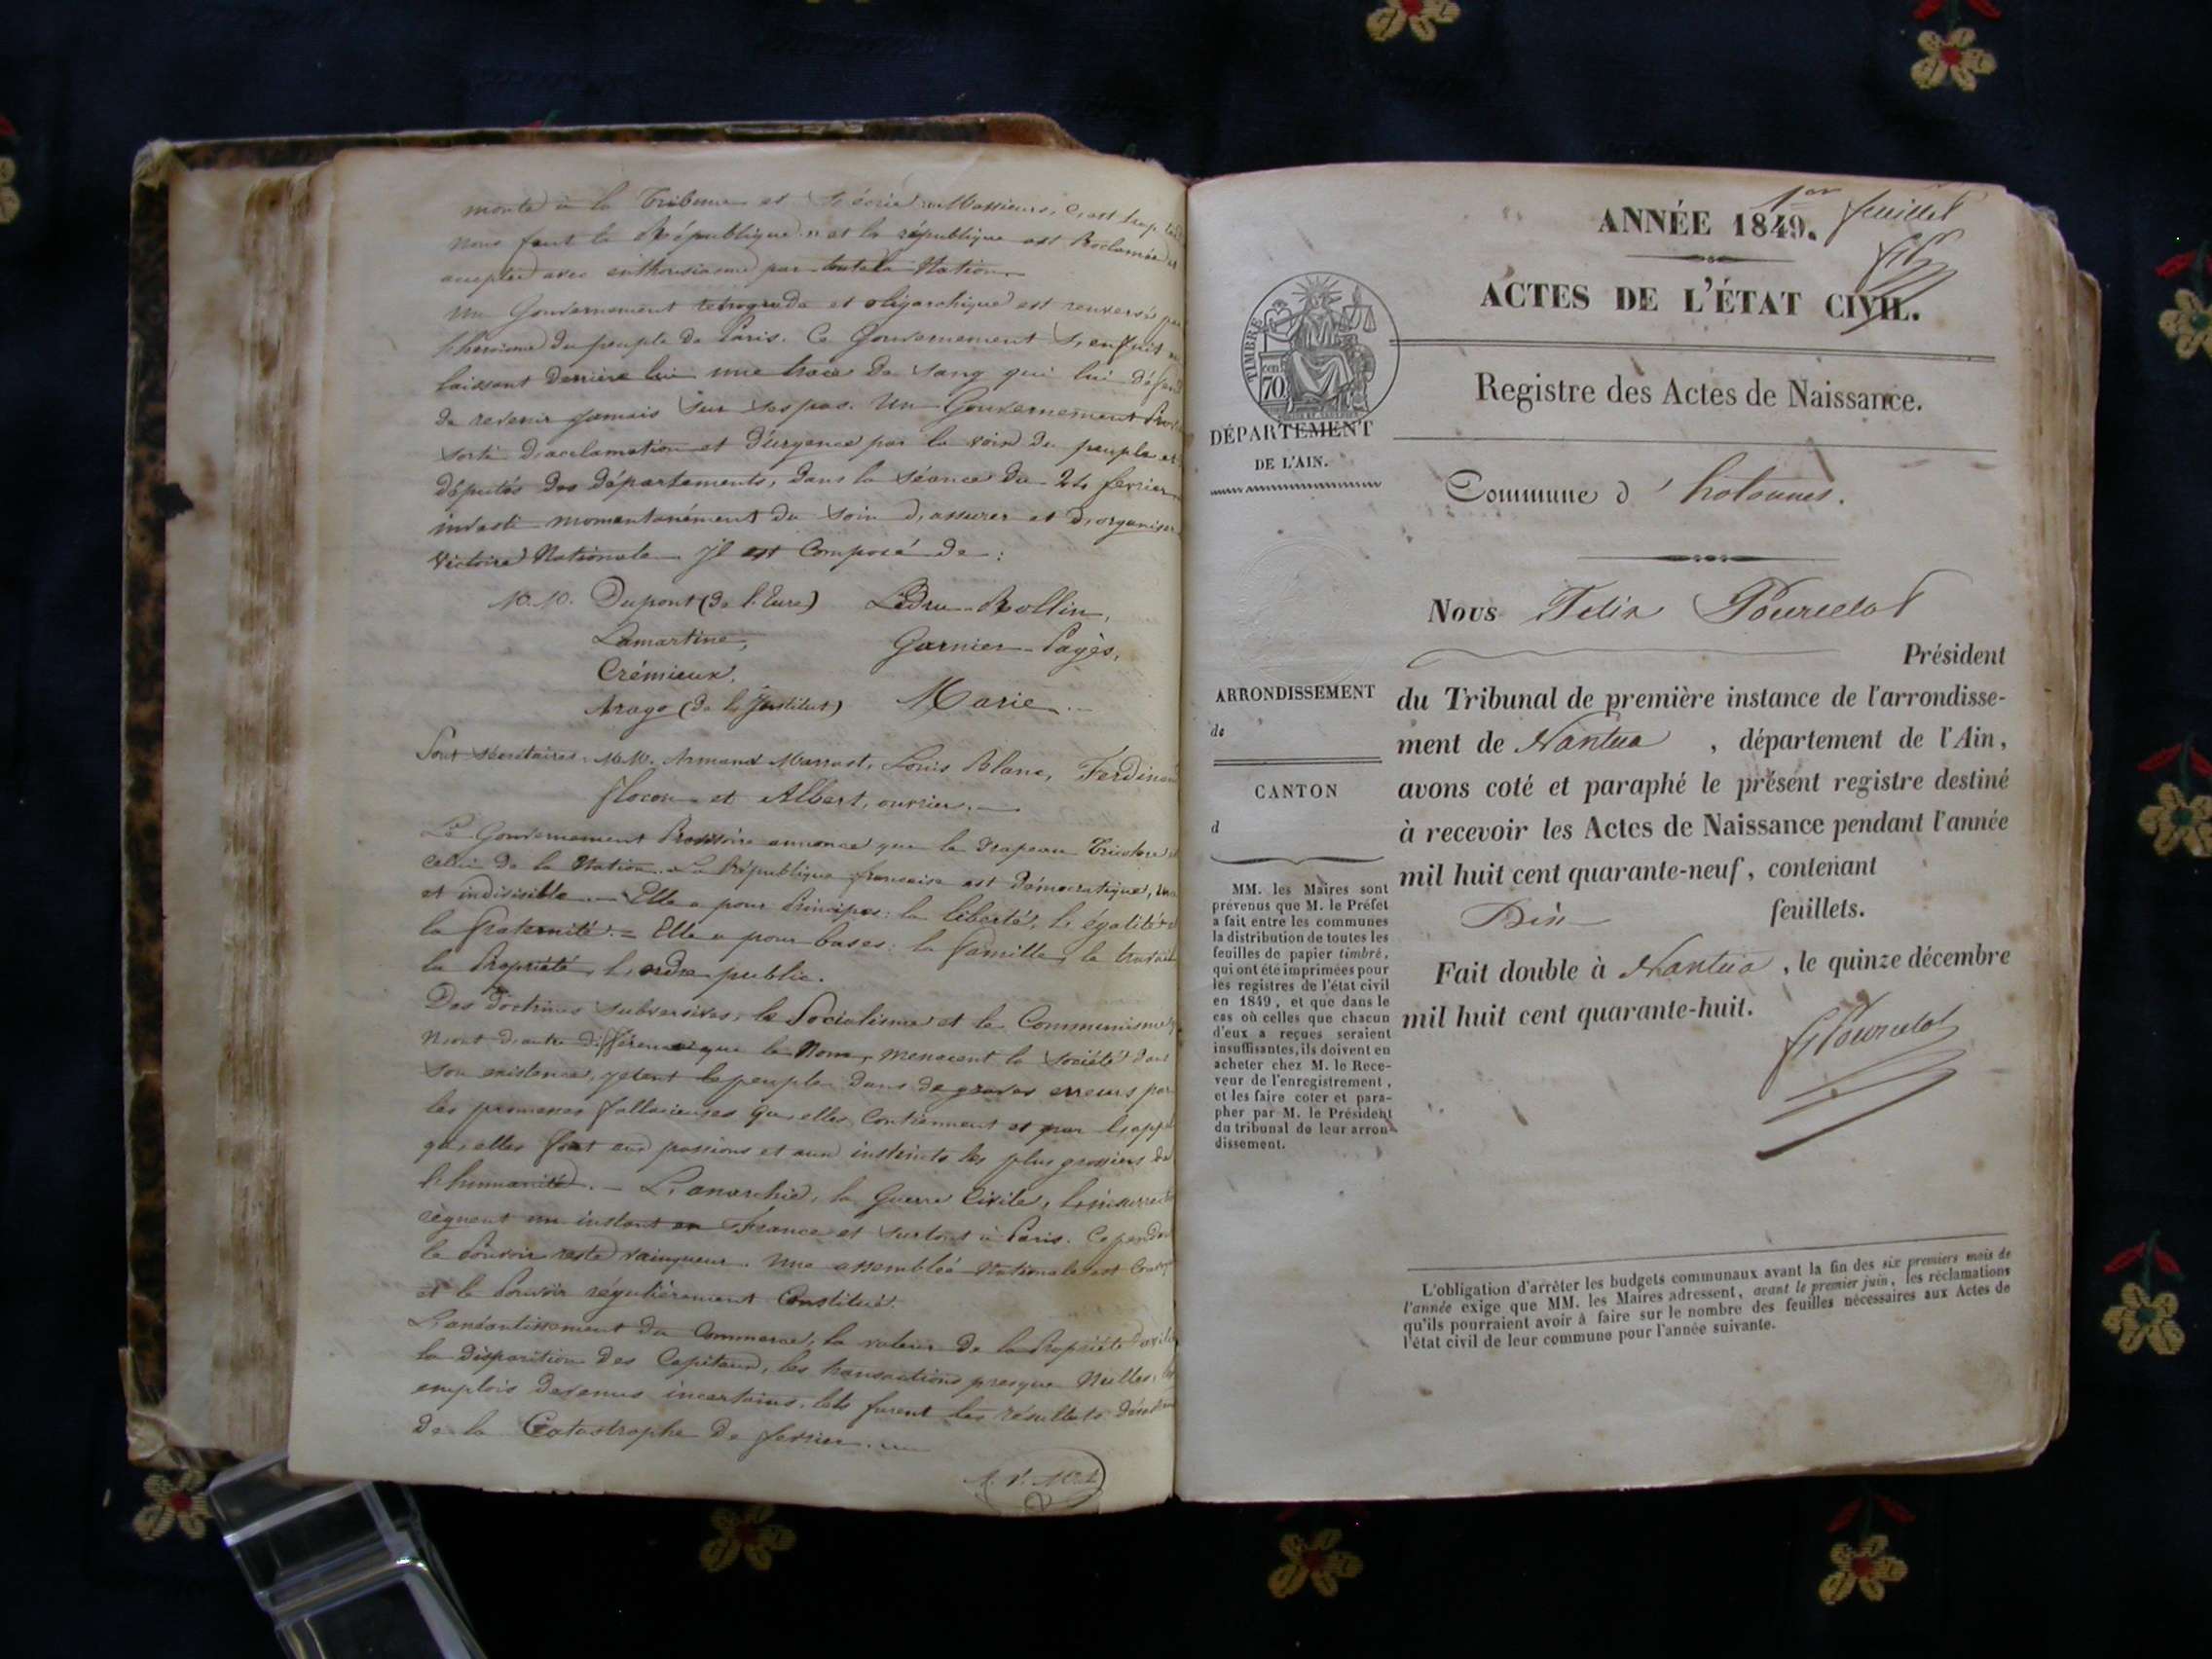 monte à la Tribune et s'écrie « Messieurs, c'est trop tard
nous faut la République » et la république est Proclamée et
acceptée avec enthousiasme par toute la Nation.
Un Gouvernement rétrograde et oligarchique est renversé par
l'héroïsme du peuple de Paris. Ce Gouvernement s'enfuit en
laissant derrière lui une trace de sang qui lui défend
de revenir jamais sur ses pas. Un Gouvernement Prov
sorti d'acclamation et d'urgence par la voix du peuple et
députés des départements, dans la séance du 24 février
investi momentanément du soin d'assurer et d'organiser
victoire Nationale Il est Composé de :
M.M. Dupont (de l'Eure) Ledru-Rollin,
Lamartine, Garnier-Pagès,
Crémieux,
Arago (de l'Institut) Marie.
Pour Secrétaires : M.M. Armand Marrast, Louis Blanc, Ferdinand
flocon et Albert, ouvrier.
Le Gouvernement Provisoire annonce que le drapeau Tricolore
celui de la Nation. La République française est démocratique, une
et indivisible. - Elle a pour Principes : la liberté, l'égalité
la fraternité. = Elle a pour bases : la famille, le travail
la Propriété, l'ordre public.
Des doctrines subversives, le Socialisme et le Communisme
n'ont d'autre différence que le Nom, menacent la société dans
son existence, jetent le peuple dans de graves erreurs par
les promesses fallacieuses qu'elles Contiennent et par l'appel
qu'elles font aux passions et aux instincts les plus grossiers de
l'humanité. - L'anarchie, la Guerre Civile, l'insurrection
règnent un instant en France et surtout à Paris. Cependant
le Pouvoir reste vainqueur. Une assemblée Nationale est
et le Pouvoir régulièrement Constitué.
L'anéantissement du Commerce, la valeur de la Propriété avilie
la disparition des Capitaux, les transactions presque Nulles, les
emplois devenus incertains, tels furent les résultats
de la Catastrophe de février.
1er feuillet
ANNÉE 1849.
ACTES DE L'ÉTAT CIVIL.
Registre des Actes de Naissance.
TIMBRE
cen
70
DÉPARTEMENT
DE L'AIN.
Commune d' hotonnes.
Nous Felix Pourcelot
Président
ARRONDISSEMENT
de
CANTON
d
du Tribunal de première instance de l'arrondisse-
ment de Nantua , département de l'Ain,
avons coté et paraphé le présent registre destiné
à recevoir les Actes de Naissance pendant l'année
mil huit cent quarante-neuf, contenant
Dix feuillets.
Fait double à Nantua , le quinze décembre
mil huit cent quarante-huit.
Pourcelot
MM. les Maires sont
prévenus que M. le Préfet
a fait entre les communes
la distribution de toutes les
feuilles de papier timbré,
qui ont été imprimées pour
les registres de l'état civil
en 1849, et que dans le
cas où celles que chacun
d'eux a reçues seraient
insuffisantes, ils doivent en
acheter chez M. le Rece-
veur de l'enregistrement,
et les faire coter et para-
pher par M. le Président
du tribunal de leur arron-
dissement.
L'obligation d'arrêter les budgets communaux avant la fin des six premiers mois de
l'année exige que MM. les Maires adressent, avant le premier juin, les réclamations
qu'ils pourraient avoir à faire sur le nombre des feuilles nécessaires aux Actes de
l'état civil de leur commune pour l'année suivante.